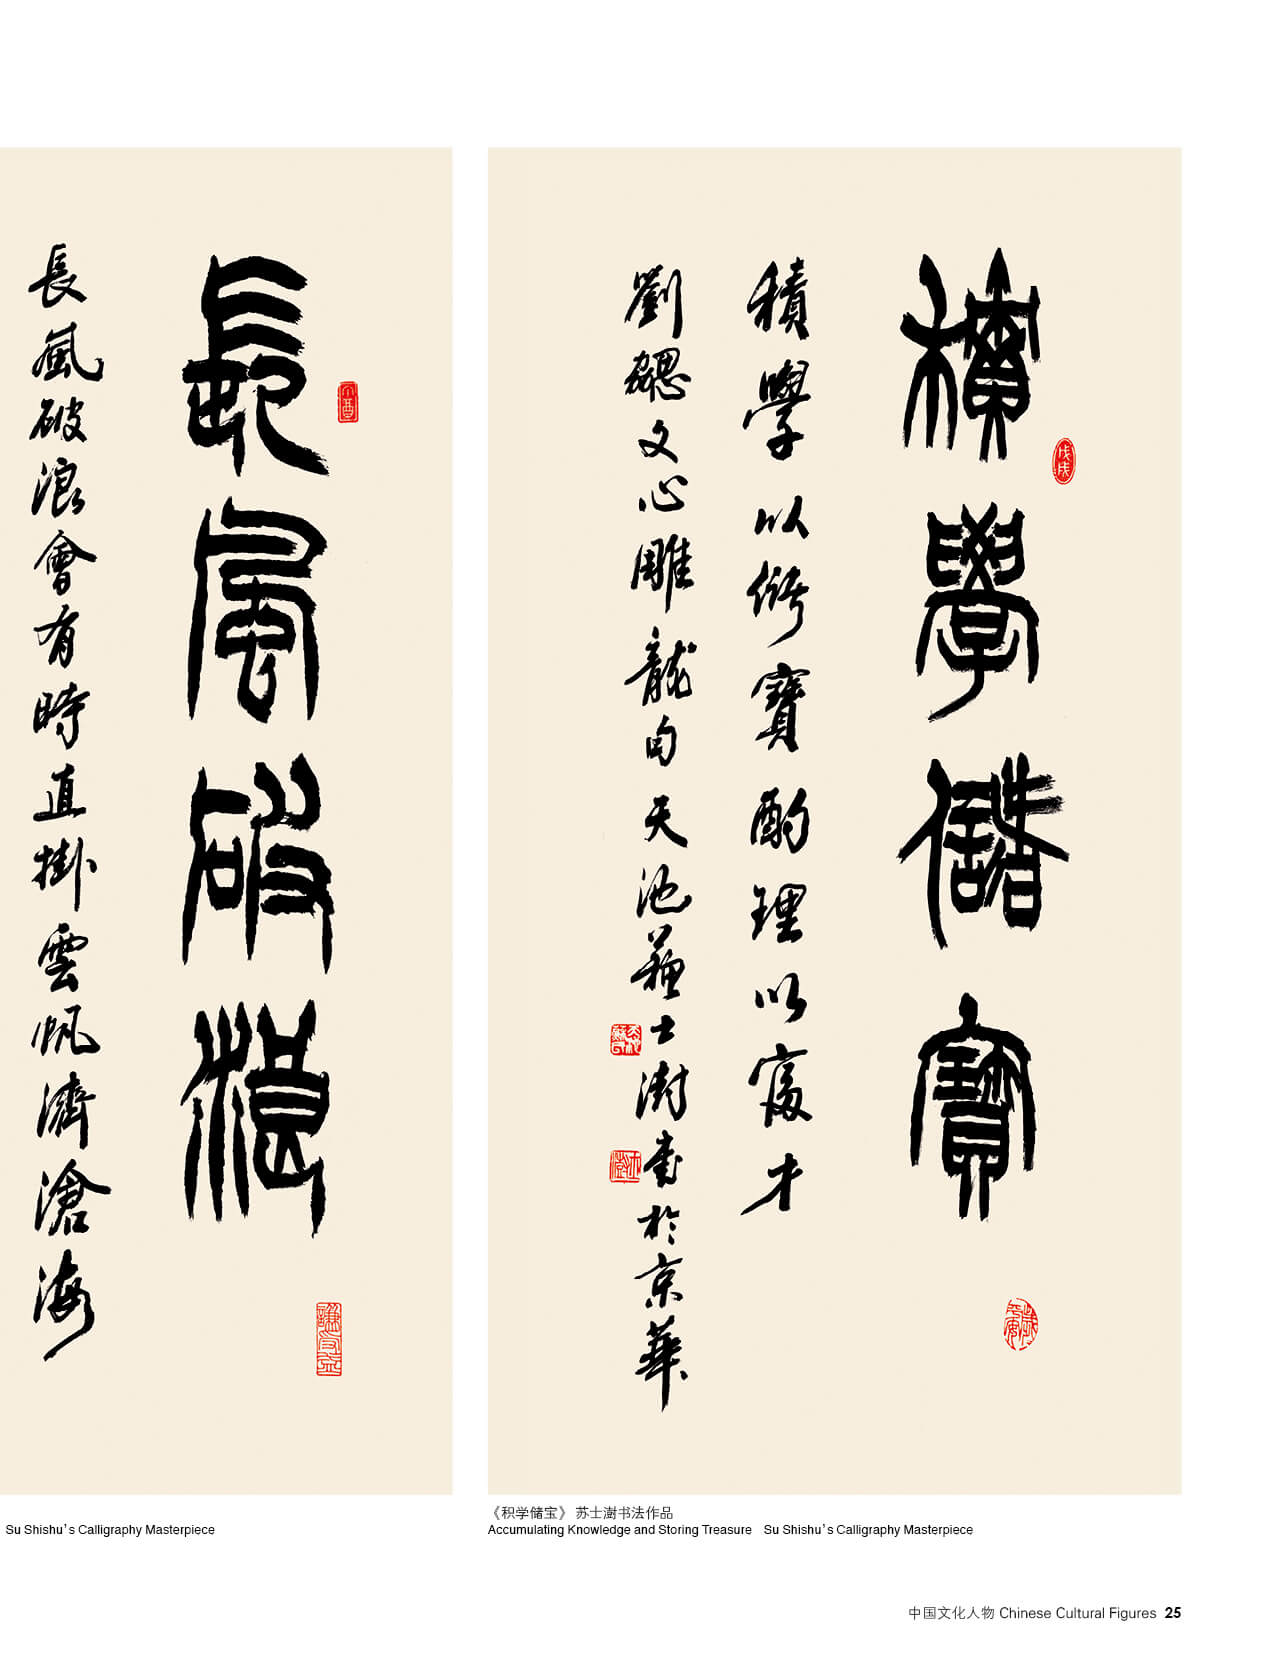 積學儲寶
戊戌
積學以儲寶酌理以富才
劉勰文心雕龍句天池蘇士澍書於京華
長風破浪
丁酉
謙受益
長風破浪會有時直掛雲帆濟滄海
Su Shishu’s Calligraphy Masterpiece
《积学储宝》 苏士澍书法作品
Accumulating Knowledge and Storing Treasure Su Shishu’s Calligraphy Masterpiece
中国文化人物 Chinese Cultural Figures 25